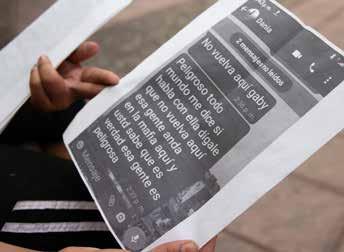 Dania
2 mensajes no leídos
No vuelva aquí gaby
2:36 p.m.
Peligroso todo
mundo me dice si
habla con ella dígale
que no vuelva aquí
esa gente anda
en la mafia aquí y
ustd sabe que es
verdad esa gente es
peligrosa
2:37 p.
Mensaje